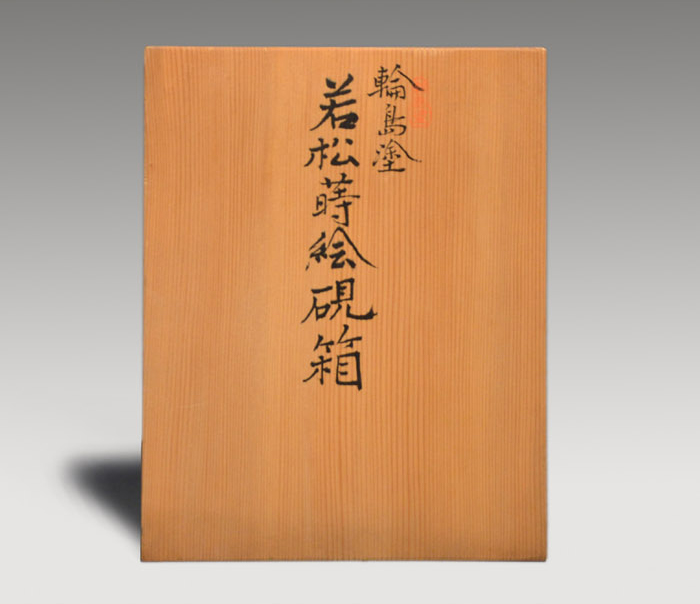 輪島塗
若松蒔絵硯箱